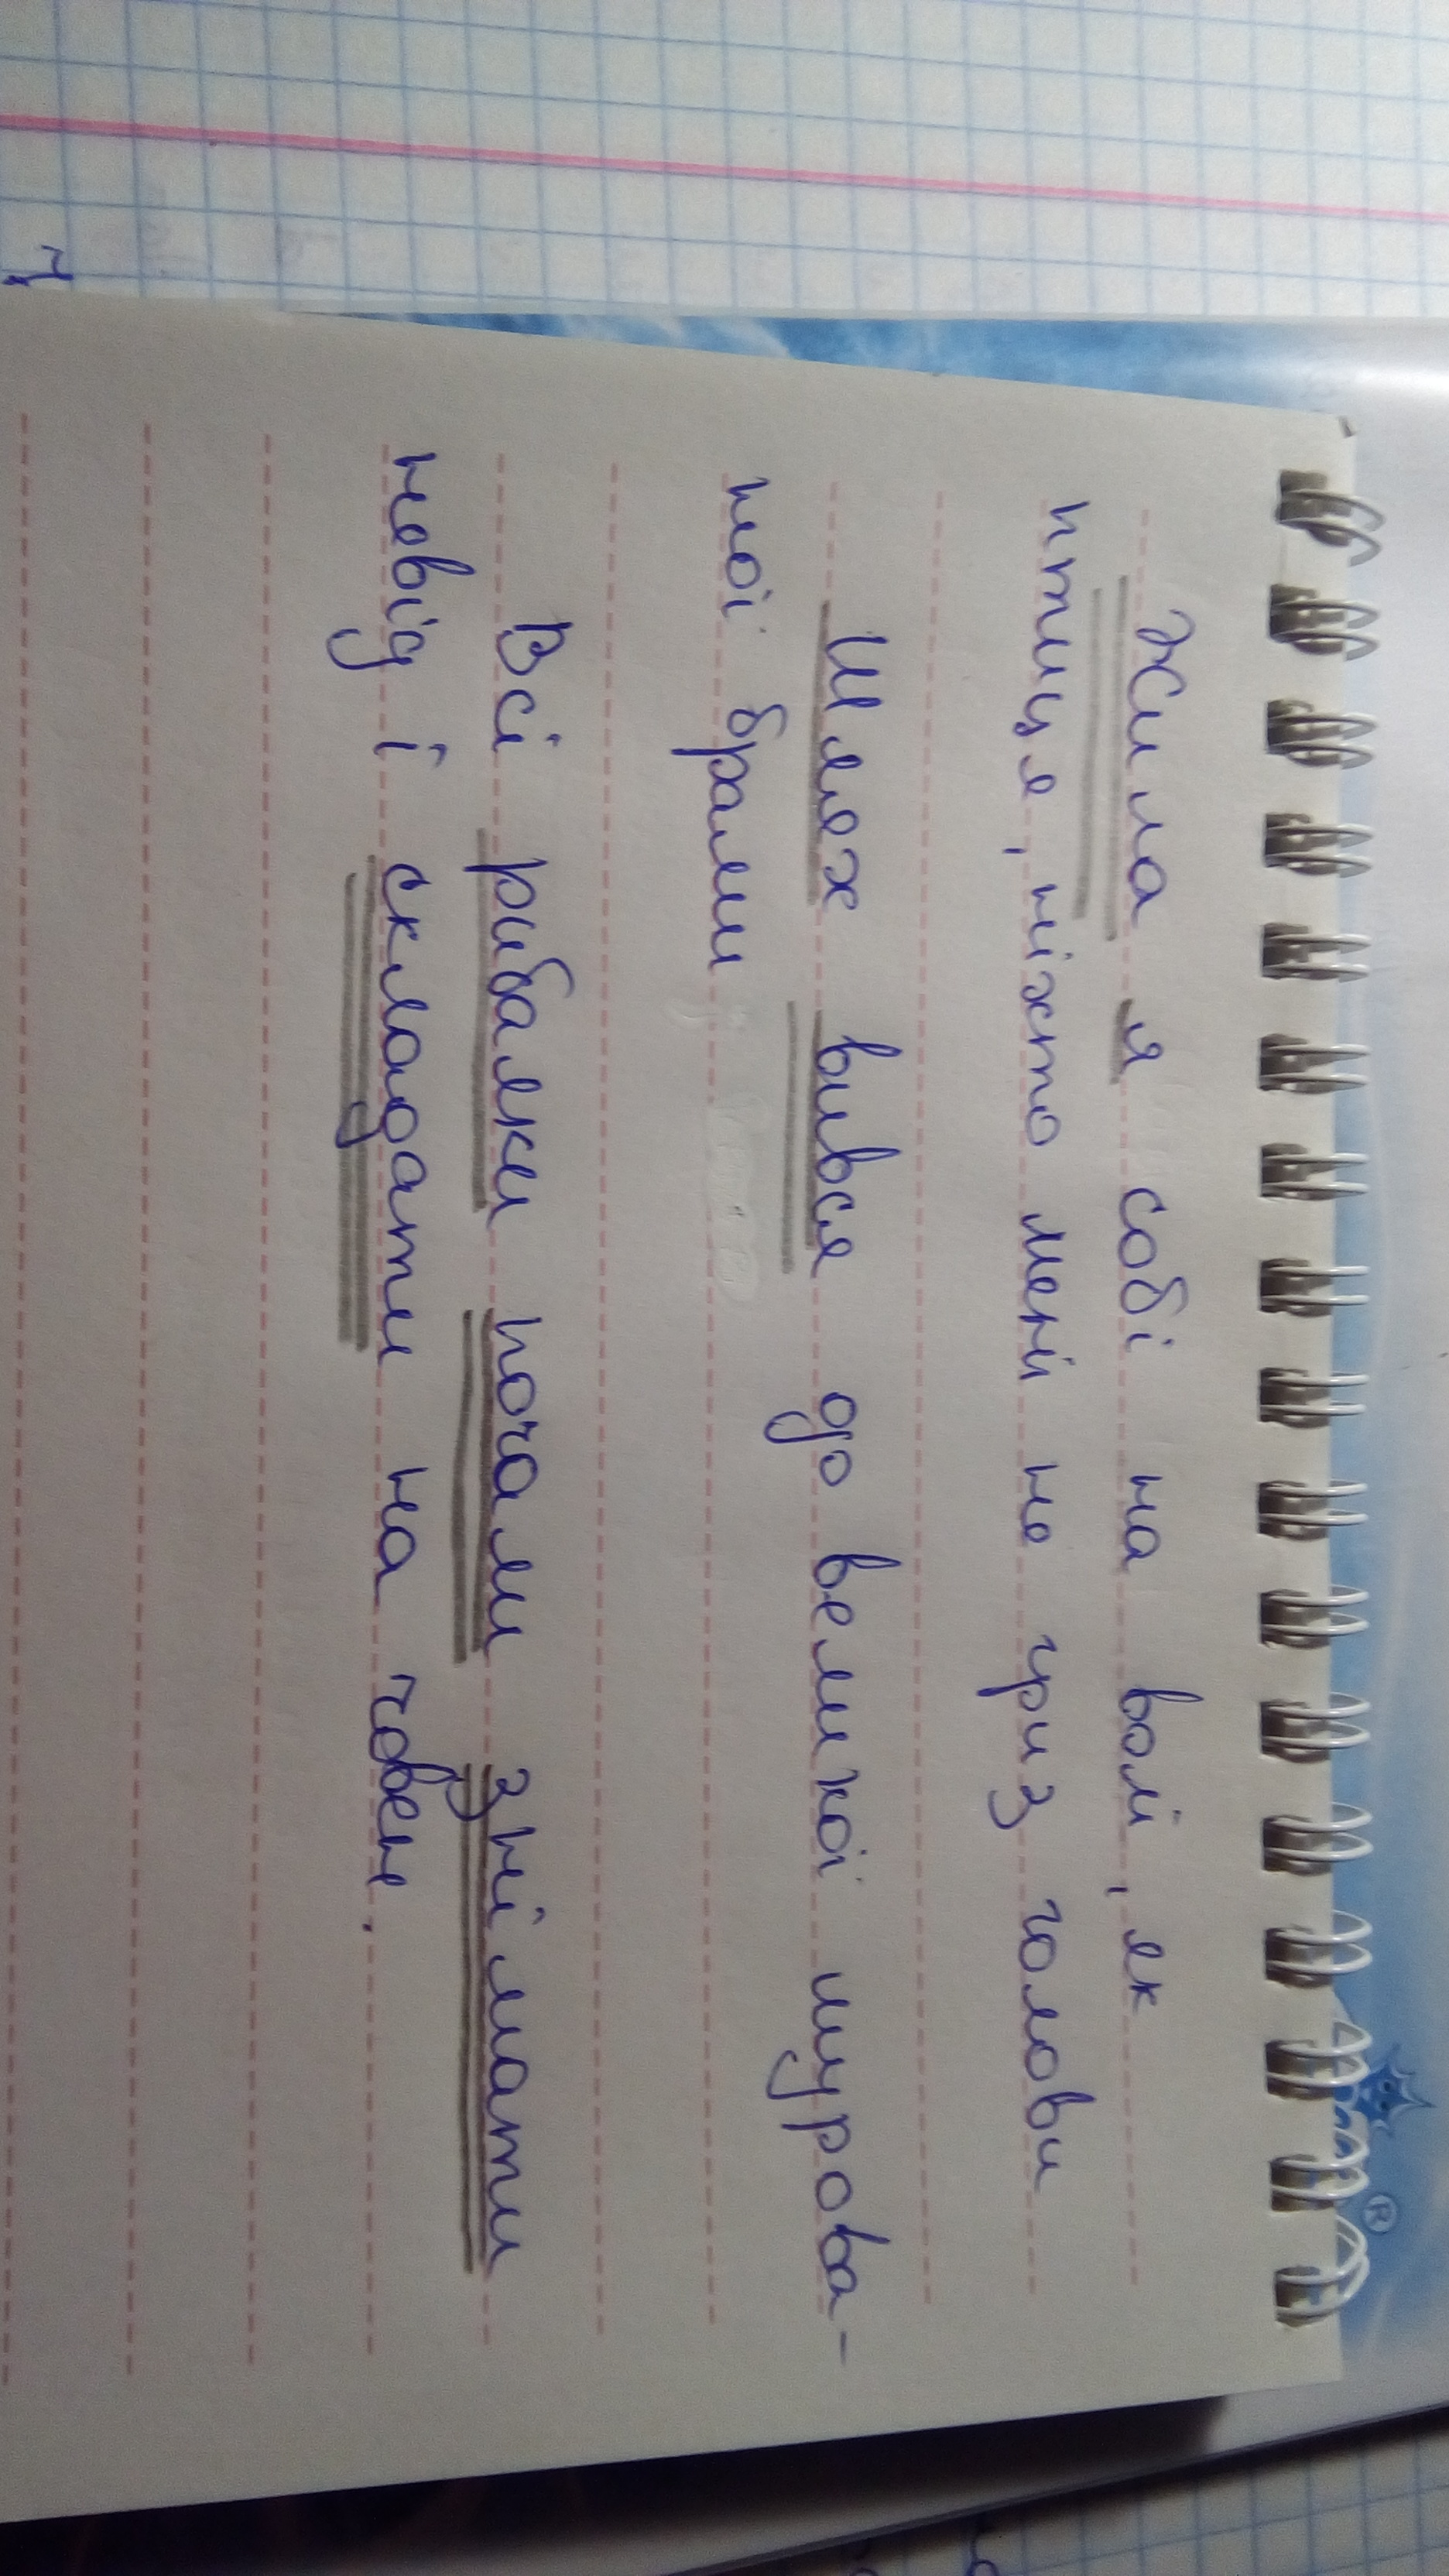 Жила я собі на волі, як
птиця, ніхто мені не гриз голови
Шлях вився до великої мурова-
ної брами
Всі рибалки почали знімати
невід і складати на човен.
®